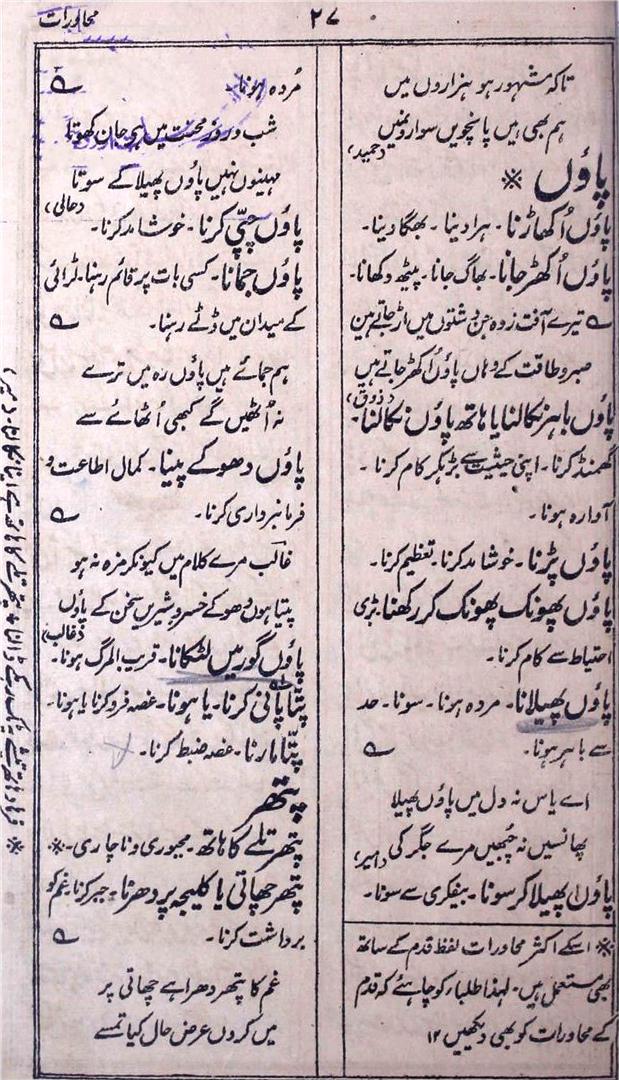 ۲۷
محاورات
تاکہ مشہور ہو ہزاروں میں
ہم بھی ہیں پانچویں سواروں میں
(حمید)
پاؤں ※
پاؤں اُکھاڑنا۔ ہرا دینا۔ بھگا دینا۔
پاؤں اُکھڑ جانا۔ بھاگ جانا۔ پیٹھ دکھانا۔
؎ تیرے آفت زدہ جن دشتوں میں اڑ جاتے ہیں
صبر و طاقت کے وہاں پاؤں اُکھڑ جاتے ہیں
(ذوق)
پاؤں باہر نکالنا یا ہاتھ پاؤں نکالنا۔
گھمنڈ کرنا۔ اپنی حیثیت سے بڑہکر کام کرنا۔
آوارہ ہونا۔
پاؤں پڑنا۔ خوشامد کرنا۔ تعظیم کرنا۔
پاؤں پھونک پھونک کر رکھنا۔ بڑی
احتیاط سے کام کرنا۔
پاؤں پھیلانا۔ مردہ ہونا۔ سونا۔ حد
سے باہر ہونا۔ ؎
اے یاس نہ دل میں پاؤں پھیلا
پھانسیں نہ چُبھیں مرے جگر کی (امیر)
پاؤں پھیلا کر سونا۔ بیفکری سے سونا۔
※ اسکے اکثر محاورات لفظ قدم کے ساتھ
بھی مستعمل ہیں۔ لہذا طلباء کو چاہئے کہ قدم
کے محاورات کو بھی دیکھیں ۱۲
مُردہ ہونا۔ ؎
شب و روز محنت میں ہی جان کھوتا
مہینوں نہیں پاؤں پھیلا کے سوتا
(حالی)
پاؤں چپّی کرنا۔ خوشامد کرنا۔
پاؤں جمانا۔ کسی بات پر قائم رہنا۔ لڑائی
کے میدان میں ڈٹے رہنا۔ ؎
ہم جمائے ہیں پاؤں رہ میں ترے
نہ اُٹھیں گے کبھی اُٹھائے سے
پاؤں دھو کے پینا۔ کمال اطاعت و
فرمانبرداری کرنا۔ ؎
غالب مرے کلام میں کیونکر مزہ نہ ہو
پیتا ہوں دھو کے خسرو شیریں سخن کے پاؤں
(غالب)
پاؤں گور میں لٹکانا۔ قریب المرگ ہونا۔
پِتّا پانی کرنا۔ یا ہونا۔ غصہ فرو کرنا یا ہونا۔
پِتّا مارنا۔ غصہ ضبط کرنا۔
پتھر
پتھر تلے کا ہاتھ۔ مجبوری و ناچاری۔ ※
پتھر چھاتی یا کلیجہ پر دھرنا۔ جبر کرنا۔ غم کو
برداشت کرنا۔ ؎
غم کا پتھر دھرا ہے چھاتی پر
میں کروں عرض حال کیا تمسے
※ فرہاد ہاتھ تیشے پہ ٹک رکھ کے ڈالتا + پتھر تلے کا ہاتھ ہے اپنا نکالتا۔ (میر)